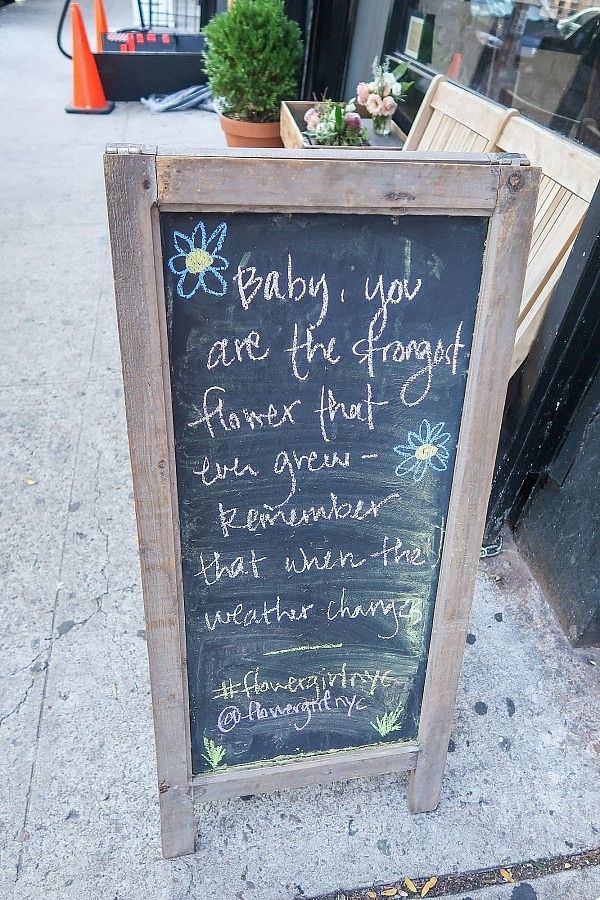 Baby, you
are the strongest
flower that
ever grew-
Remember
that when the
weather changes
#flowergirlnyc
@flowergirlnyc